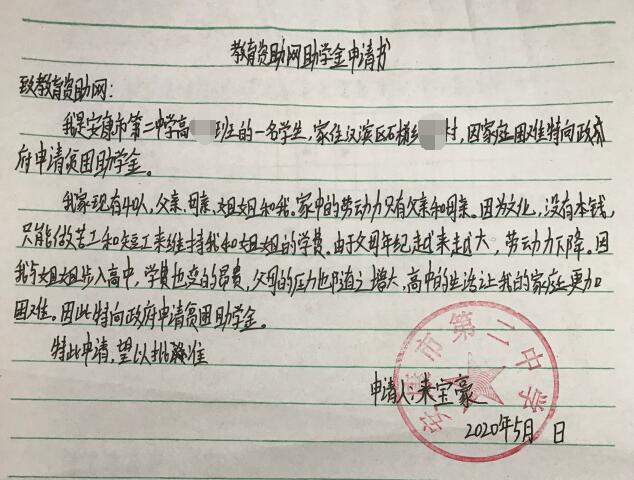 教育资助网助学金申请书
致教育资助网:
我是安康市第二中学高 班的一名学生,家住汉滨区石梯乡 村,因家庭困难特向政
府申请贫困助学金。
我家现有4口人,父亲、母亲、姐姐和我。家中的劳动力只有父亲和母亲。因为文化,没有本钱,
只能做苦工和短工来维持我和姐姐的学费。由于父母年纪越来越大,劳动力下降。因
我与姐姐步入高中,学费也变的昂贵,父母的压力也随之增大,高中的生活让我的家庭更加
困难。因此特向政府申请贫困助学金。
特此申请,望以批准
申请人:来宝豪
2020年5月 日
安康市第二中学